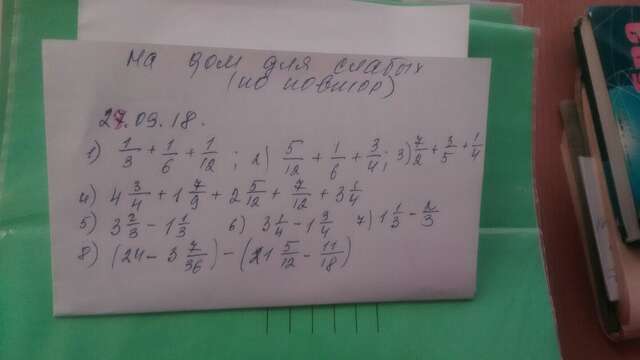 на дом для слабых
(по повтор)
27.09.18.
1) 1/3 + 1/6 + 1/12 ; 2) 5/12 + 1/6 + 3/4 ; 3) 7/2 + 3/5 + 1/4
4) 4 3/4 + 1 7/9 + 2 5/12 + 7/12 + 3 1/4
5) 3 2/3 - 1 1/3 6) 3 1/4 - 1 3/4 7) 1 1/3 - 2/3
8) (24 - 3 7/36) - (21 5/12 - 11/18)